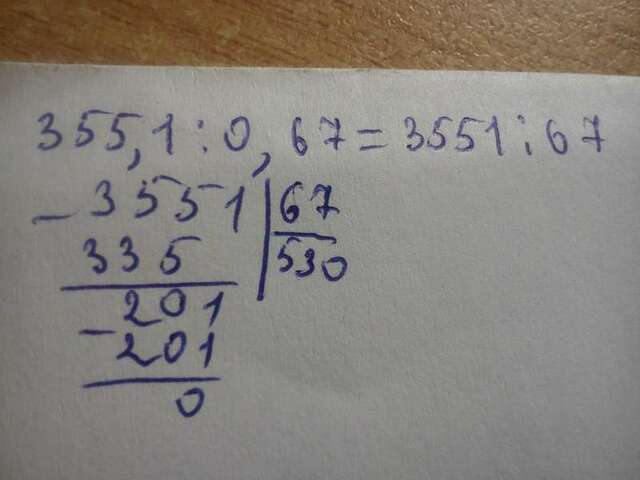 355,1:0,67=3551:67
- 3551 | 67
335 | 530
- 201
201
0